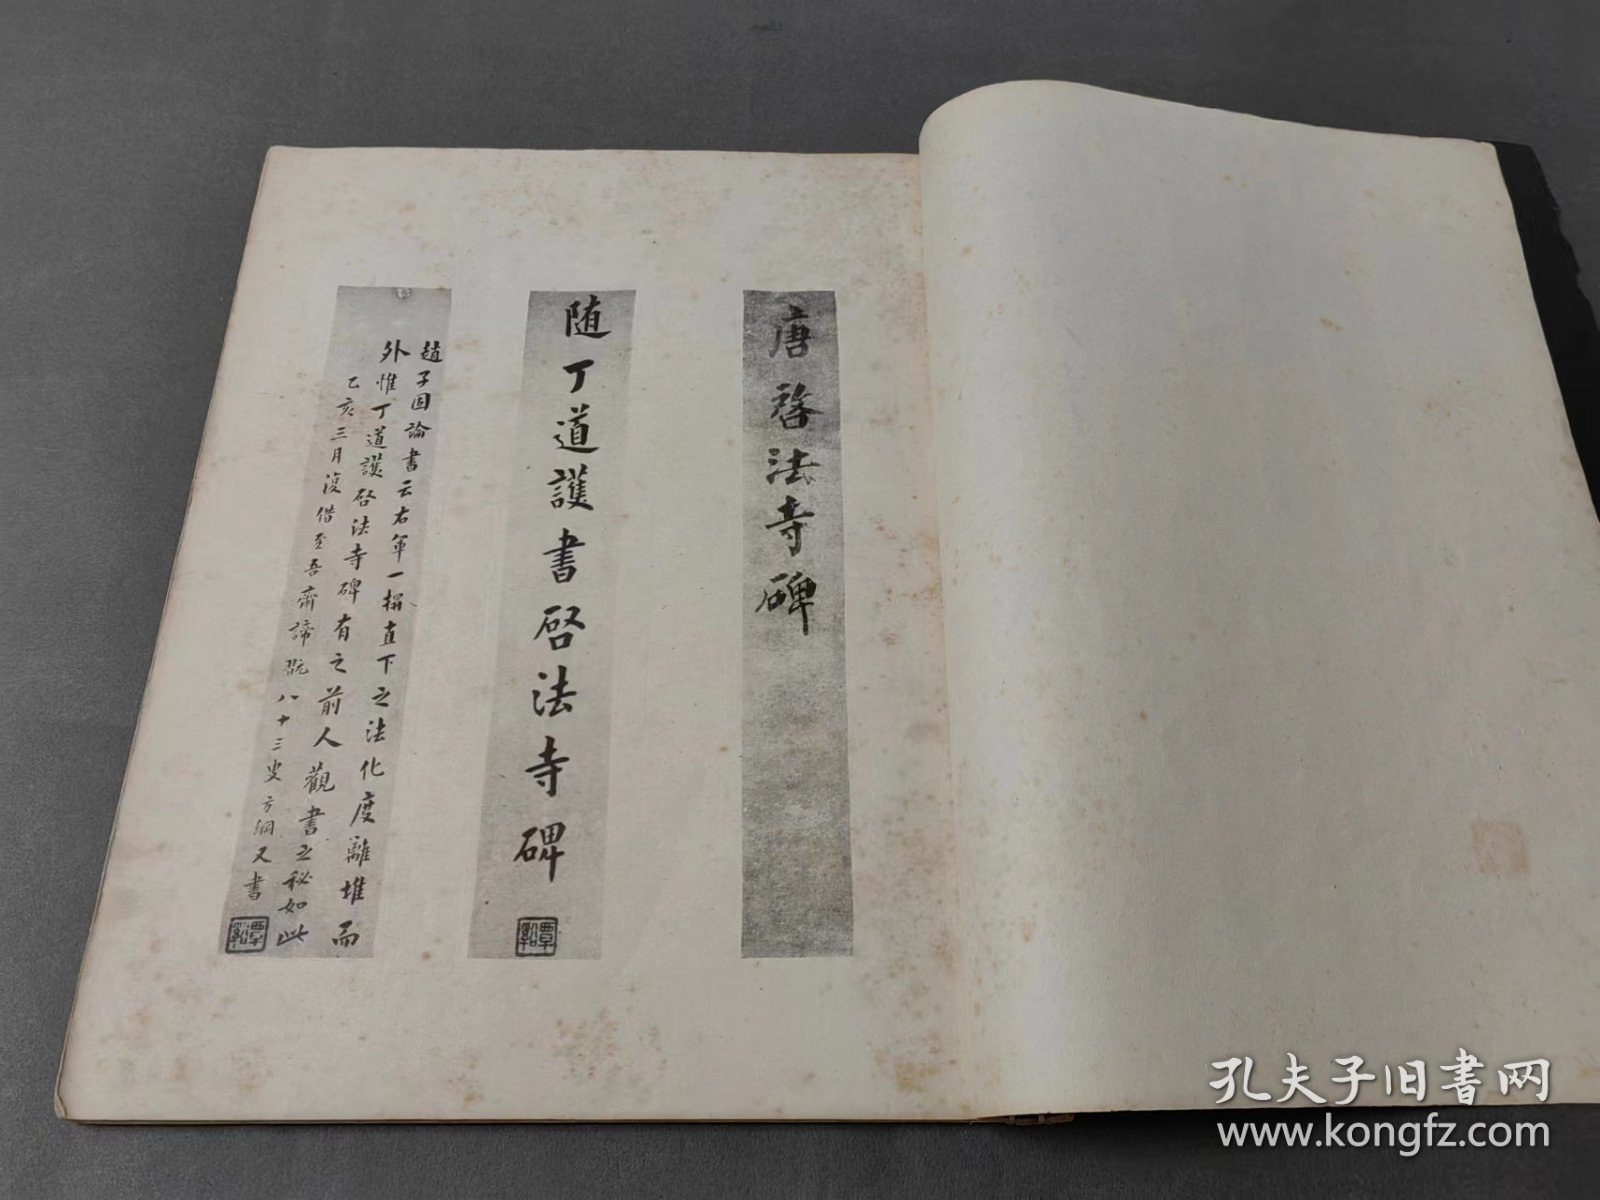 唐啓法寺碑
随丁道護書啓法寺碑
覃谿
趙子固論書云右軍一搨直下之法化度離堆而
外惟丁道護啓法寺碑有之前人觀書之秘如此
乙亥三月復借至吾齋諦翫八十三叟方綱又書
覃谿
孔夫子旧书网
www.kongfz.com